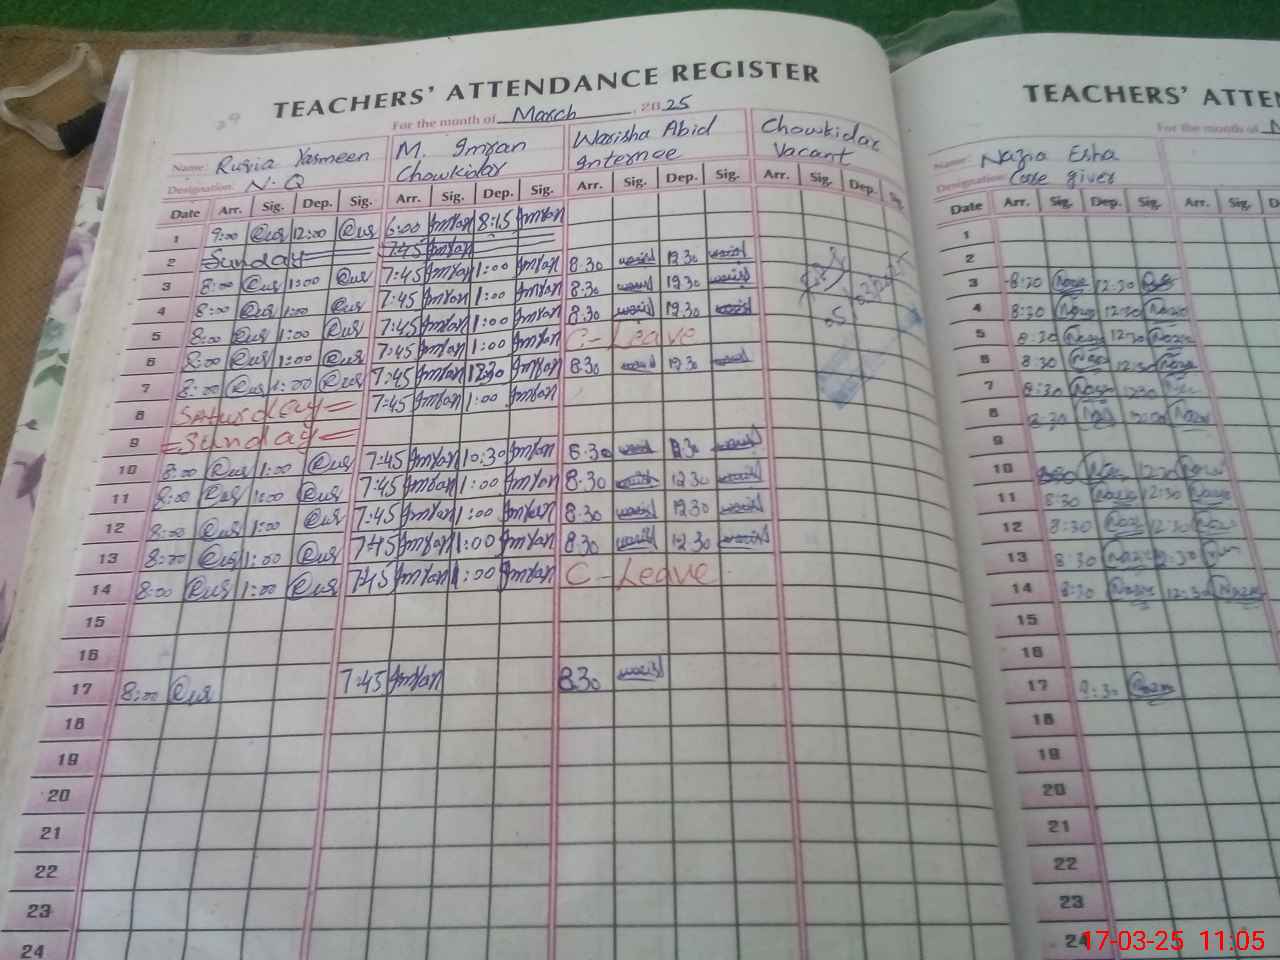 TEACHERS' ATTENDANCE REGISTER
For the month of March, 2025
Name: Ruqia Yasmeen M. Imran Warisha Abid Chowkidar
Designation: N.Q Chowkidar Internee Vacant
Date Arr. Sig. Dep. Sig. Arr. Sig. Dep. Sig. Arr. Sig. Dep. Sig. Arr. Sig. Dep. Sig.
1 9:00 12:00 6:00 Imran 8:15 Imran
2 Sunday 7:45 Imran
3 8:00 1:00 7:45 Imran 1:00 Imran 8:30 12:30
4 8:00 1:00 7:45 Imran 1:00 Imran 8:30 12:30
5 8:00 1:00 7:45 Imran 1:00 Imran 8:30 12:30
6 8:00 1:00 7:45 Imran 1:00 Imran C-Leave
7 8:00 1:00 7:45 Imran 12:30 Imran 8:30 12:30
8 Saturday 7:45 Imran 1:00 Imran
9 Sunday
10 8:00 1:00 7:45 Imran 10:30 Imran 8:30
11 8:00 1:00 7:45 Imran 1:00 Imran 8:30 12:30
12 8:00 1:00 7:45 Imran 1:00 Imran 8:30 12:30
13 8:00 1:00 7:45 Imran 1:00 Imran 8:30 12:30
14 8:00 1:00 7:45 Imran 1:00 Imran C-Leave
15
16
17 8:00 7:45 Imran 8:30
18
19
20
21
22
23
24
TEACHERS' ATTEN
For the month of
Name: Nazia Esha
Designation: Care giver
Date Arr. Sig. Dep. Sig. Arr. Sig. D
1
2
3 8:30 12:30
4 8:30 12:30
5 8:30 12:30
6 8:30 12:30
7 8:30 12:30
8 8:30
9
10 12:30
11 8:30 12:30
12 8:30 12:30
13 8:30 12:30
14 8:30 12:30
15
16
17 8:30
18
19
20
21
22
23
24
17-03-25 11:05